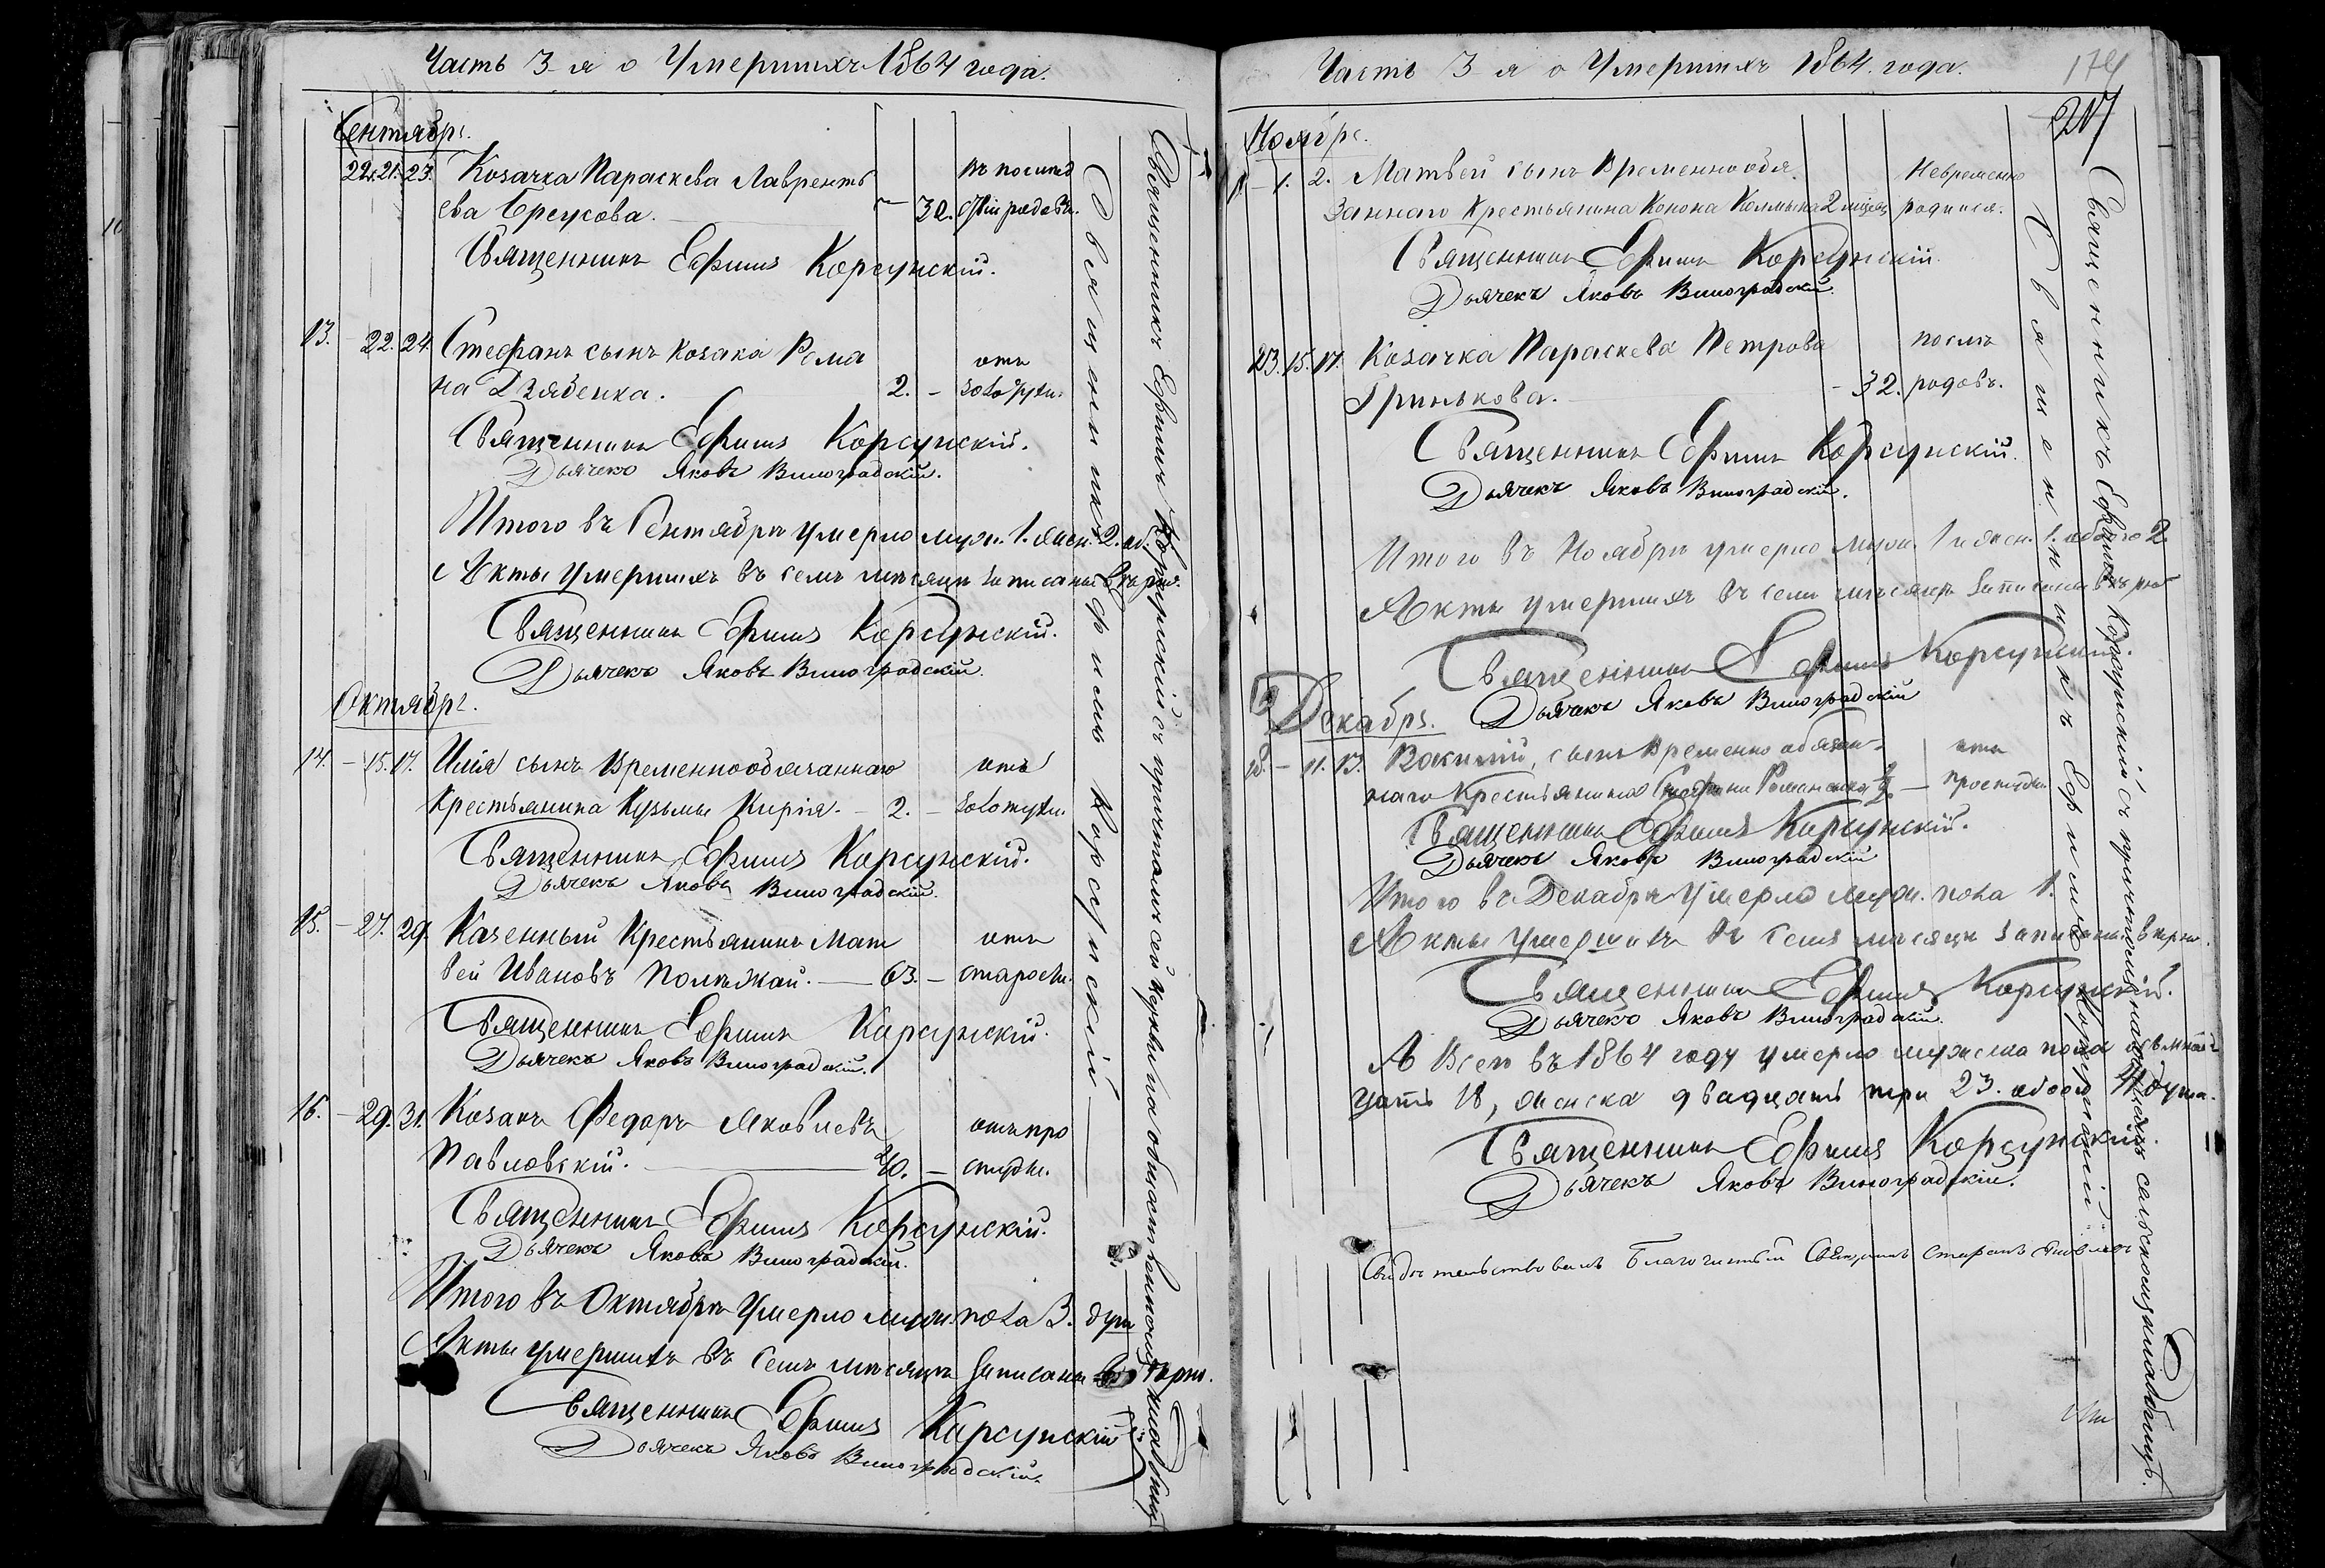 Часть 3-я о Умершихъ 1864 года.
Сентябрь.
22. 21. 23. Козачка Параскева Лавренть въ послед
ева 30. родовъ.
Священникъ Ефимъ Корсунскій.
13. – 22. 24. Стефанъ сынъ козака Рома отъ
на 2. – золотухи.
Священникъ Ефимъ Корсунскій.
Дьячекъ Яковъ Виноградскій.
Итого въ Сентябрѣ умерло муж. 1. жен. 2. об.
Акты умершихъ въ семъ мѣсяцѣ записаны вѣрно.
Священникъ Ефимъ Корсунскій.
Дьячекъ Яковъ Виноградскій.
Октябрь.
14. – 15. 17. Илія сынъ временнообязаннаго отъ
крестьянина Кузьмы Кирія. – 2. – золотухи.
Священникъ Ефимъ Корсунскій.
Дьячекъ Яковъ Виноградскій.
15. – 27. 29. Казенный крестьянинъ Мат отъ
вей Ивановъ Полежай. – 63. – старости.
Священникъ Ефимъ Корсунскій.
Дьячекъ Яковъ Виноградскій.
16. – 29. 31. Козакъ Федоръ Яковлевъ отъ про
Павловскій. 40. – студы.
Священникъ Ефимъ Корсунскій.
Дьячекъ Яковъ Виноградскій.
Итого въ Октябрѣ умерло муж. пола 3. душ
Акты умершихъ въ семъ мѣсяцѣ записаны вѣрно.
Священникъ Ефимъ Корсунскій
Дьячекъ Яковъ Виноградскій.
Священникъ Ефимъ Корсунскій
Священникъ Ефимъ Корсунскій съ причтомъ сей церкви на общественномъ кладбищѣ
Часть 3-я о Умершихъ 1864. года.
174
217
Ноябрь.
17 – 1. 2. Матвей сынъ временнообя Невременно
заннаго крестьянина Конона Колмыка 2 мѣсяц родился.
Священникъ Ефимъ Корсунскій.
Дьячекъ Яковъ Виноградскій.
23. 15. 17. Козачка Параскева Петрова послѣ
Гринькова. – 32. родовъ.
Священникъ Ефимъ Корсунскій.
Дьячекъ Яковъ Виноградскій.
Итого въ Ноябрѣ умерло муж. 1 и жен. 1. обоего 2
Акты умершихъ въ семъ мѣсяцѣ записаны вѣрно
Священникъ Ефимъ Корсунскій
Дьячекъ Яковъ Виноградскій
Декабрь.
18. – 11. 13. сынъ временно обязан- отъ
наго крестьянина Романенка – простуды
Священникъ Ефимъ Корсунскій.
Дьячекъ Яковъ Виноградскій
Итого въ Декабрѣ умерло муж. пола 1.
Акты умершихъ въ семъ мѣсяцѣ записаны вѣрно.
Священникъ Ефимъ Корсунскій.
Дьячекъ Яковъ Виноградскій.
А всего въ 1864 году умерло мужеска пола осьмнад
цать 18, женска двадцать три 23. обоего 41 душа.
Священникъ Ефимъ Корсунскій.
Дьячекъ Яковъ Виноградскій.
Свидетельствовалъ Благочинный Священникъ Стефанъ
Священникъ Ефимъ Корсунскій
Священникъ Ефимъ Корсунскій съ причтомъ на общемъ сельскомъ кладбищѣ.